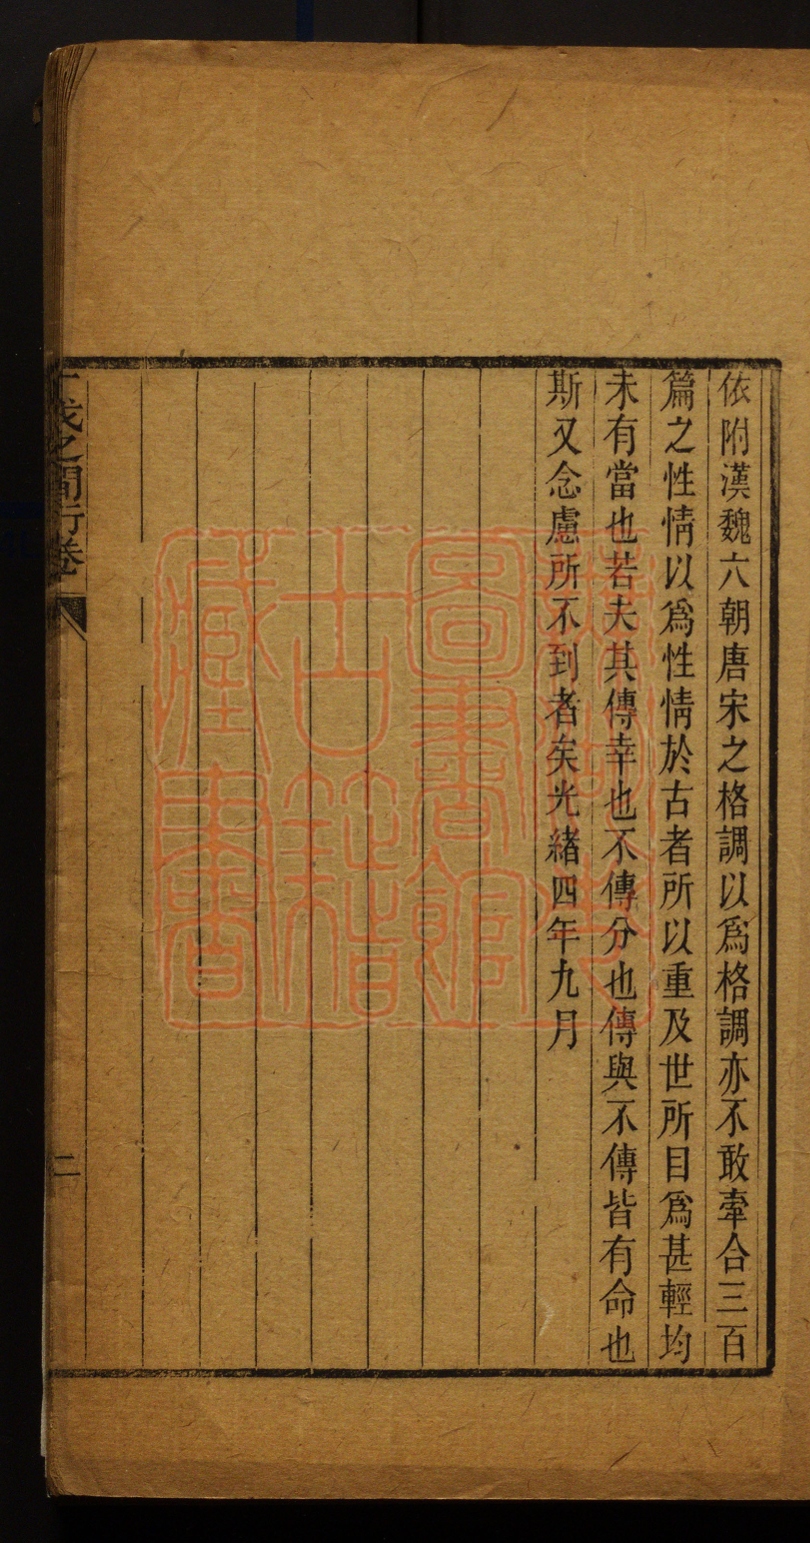 依附漢魏六朝唐宋之格調以爲格調亦不敢牽合三百
篇之性情以爲性情於古者所以重及世所目爲甚輕均
未有當也若夫其傳幸也不傳分也傳與不傳皆有命也
斯又念慮所不到者矣光緒四年九月
之間行卷
二
圖書館
古籍
藏書